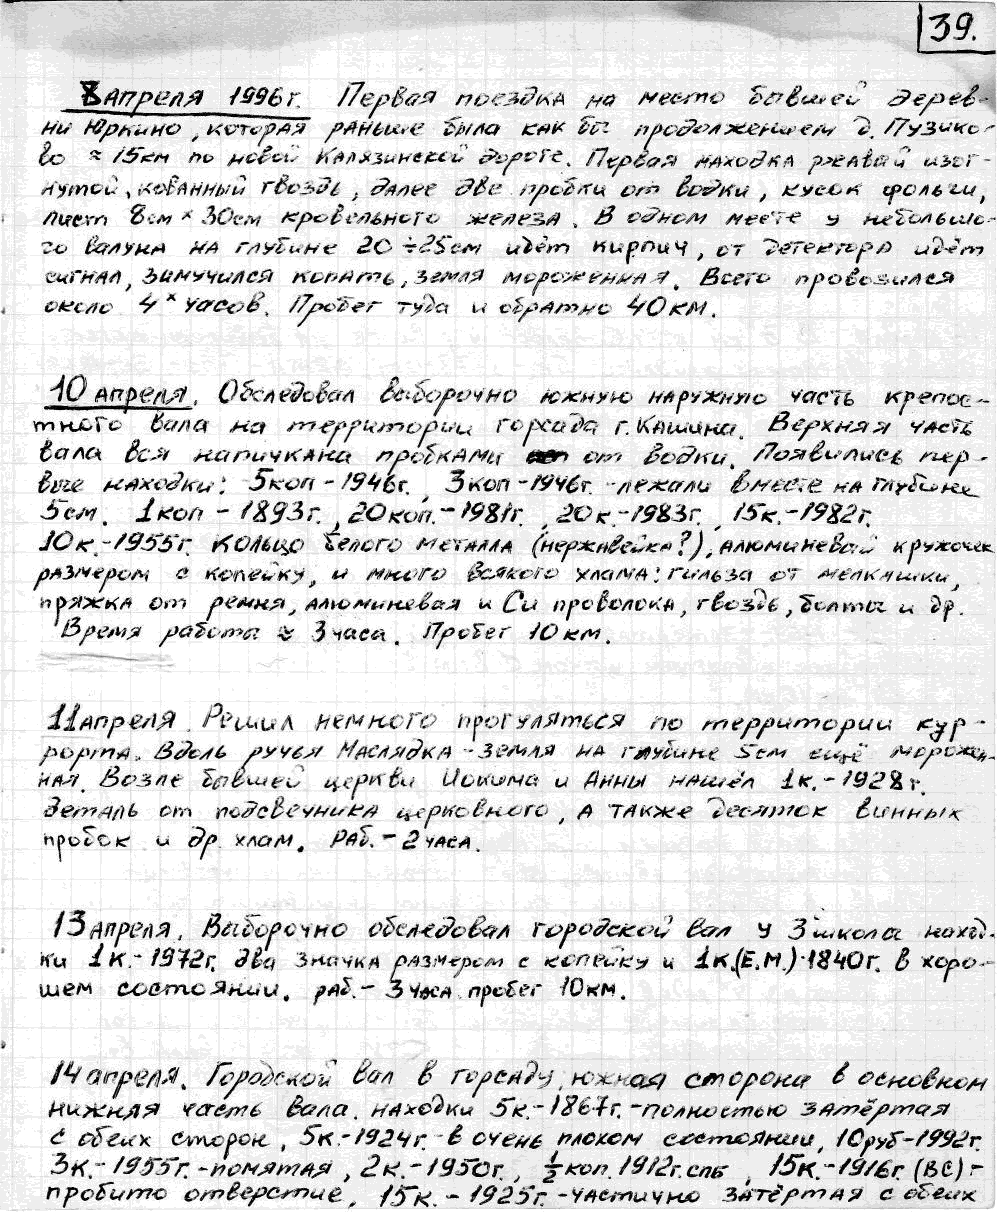 39.
8 апреля 1996г. Первая поездка на место бывшей дерев-
ни Юркино, которая раньше была как бы продолжением д. Пузико-
во ≈ 15км по новой Калязинской дороге. Первая находка ржавый изог-
нутой, кованный гвоздь, далее две пробки от водки, кусок фольги,
лист 8см × 30см кровельного железа. В одном месте у небольшо-
го валуна на глубине 20÷25см идёт кирпич, от детектора идёт
сигнал, замучился копать, земля мороженная. Всего провозился
около 4х часов. Пробег туда и обратно 40км.
10 апреля. Обследовал выборочно южную наружную часть крепос-
тного вала на территории горсада г. Кашина. Верхняя часть
вала вся напичкана пробками от водки. Появились пер-
вые находки: 5коп-1946г., 3коп-1946г.-лежали вместе на глубине
5см. 1коп-1893г., 20коп.-1981г., 20к.-1983г., 15к.-1982г.
10к.-1955г. кольцо белого металла (нержавейка?), алюминевый кружочек
размером с копейку, и много всякого хлама: гильза от мелкашки,
пряжка от ремня, алюминевая и Cu проволока, гвоздь, болты и др.
Время работы ≈ 3 часа. Пробег 10км.
11 апреля. Решил немного прогуляться по территории кур-
рорта. Вдоль ручья Маслядка - земля на глубине 5см ещё морожен-
ная. Возле бывшей церкви Иокима и Анны нашёл 1к.-1928г.
деталь от подсвечника церковного, а также десяток винных
пробок и др. хлам. Раб.-2часа.
13 апреля. Выборочно обследовал городской вал у 3 школы наход-
ки 1к.-1972г. два значка размером с копейку и 1к.(Е.М.)-1840г. в хоро-
шем состоянии. раб.- 3часа пробег 10км.
14 апреля. Городской вал в горсаду, южная сторона в основном
нижняя часть вала. находки 5к.-1867г.-полностью затёртая
с обеих сторон, 5к.-1924г.-в очень плохом состоянии, 10руб-1992г.
3к.-1955г.-помятая, 2к.-1950г., ½коп.1912г.спб, 15к.-1916г.(ВС)-
пробито отверстие, 15к.-1925г.-частично затёртая с обеих